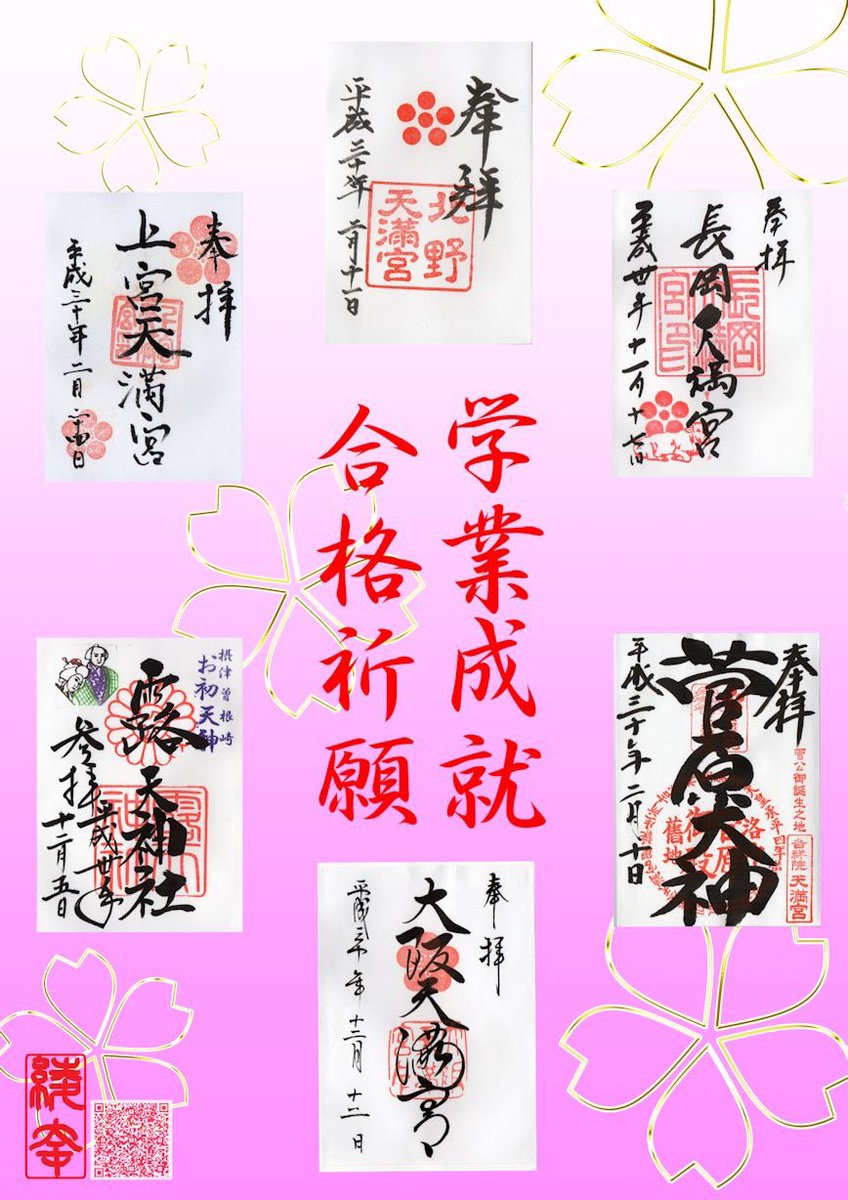 奉拝
北野
天満宮
平成三十年二月十一日
奉拝
長岡天満宮
平成卅年十一月十七日
奉拝
上宮天満宮
平成三十年二月二十四日
学業成就
合格祈願
摂津曽根崎
お初天神
露天神社
参拝平成卅年
十二月五日
奉拝
菅原天神
平成三十年二月十日
菅公御誕生之地
吉祥院天満宮
舊地
奉拝
大阪天満宮
平成三十年十二月十二日
綾幸